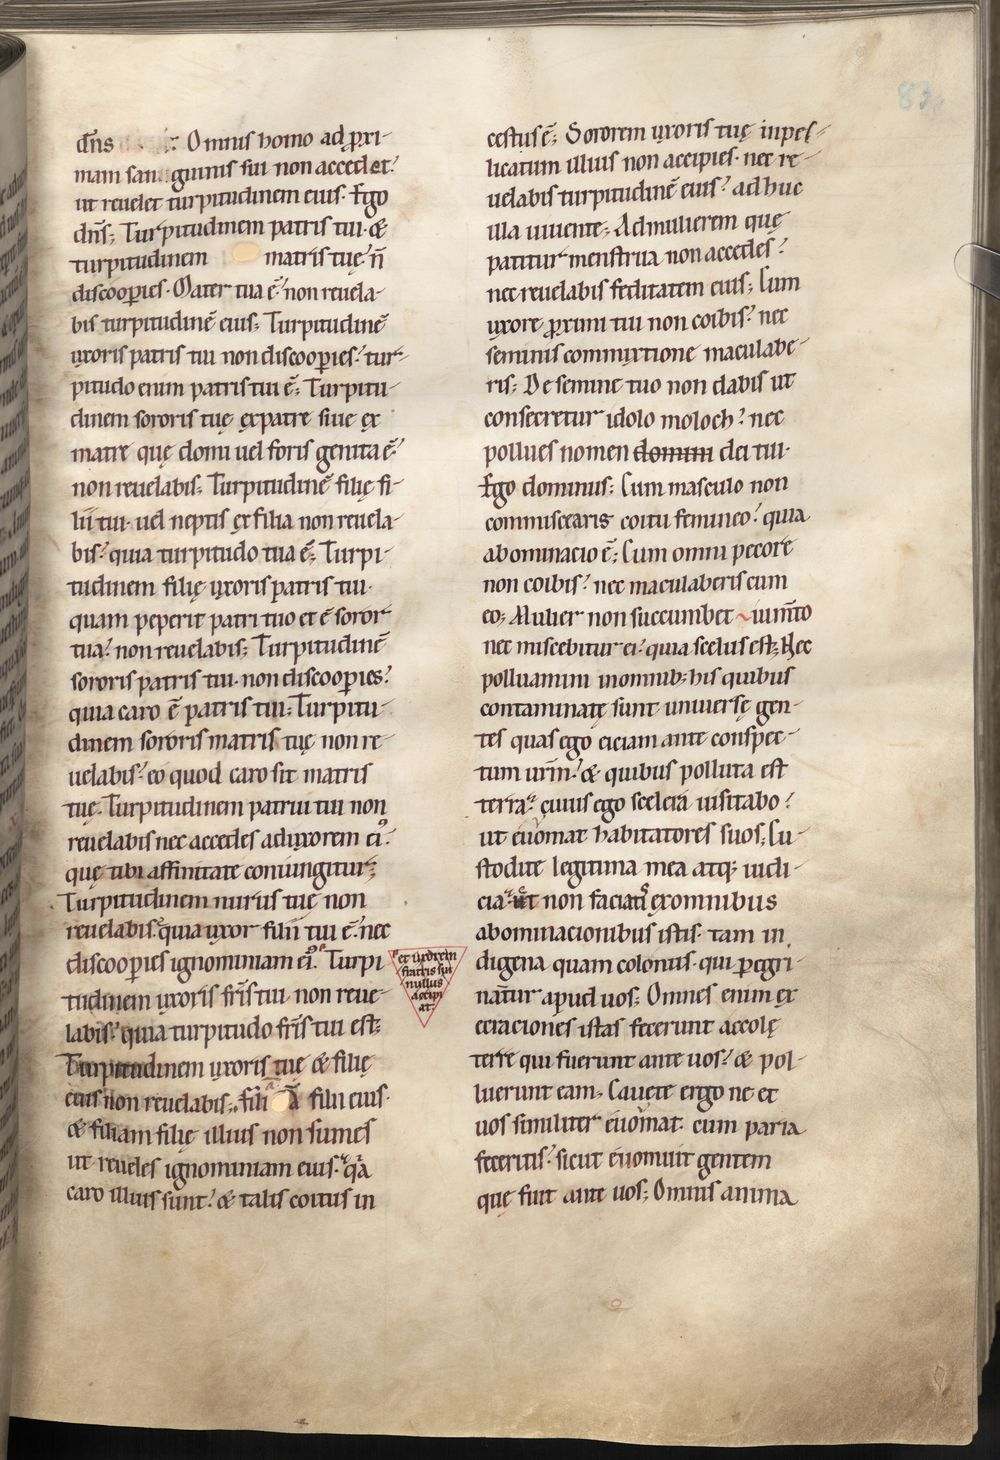 dñs Omnis homo ad ꝓxi-
mam sanguinis sui non accedet.
ut reuelet turpitudinem eius. Ego
dñs; Turpitudinem patris tui. &
turpitudinem matris tuę ñ
discoopies. Mater tua ē non reuela-
bis turpitudinē eius; Turpitudinē
uxoris patris tui non discoopies. tur-
pitudo enim patris tui ē; Turpitu-
dinem sororis tuę ex patre siue ex
matre quę domi uel foris genita ē
non reuelabis; Turpitudinē filię fi-
lii tui. uel neptis ex filia non reuela-
bis. quia turpitudo tua ē; Turpi-
tudinem filię uxoris patris tui.
quam peperit patri tuo et ē soror
tua. non reuelabis; Turpitudinē
sororis patris tui. non discoopies.
quia caro ē patris tui; Turpitu-
dinem sororis matris tuę non re-
uelabis. eo quod caro sit matris
tuę. Turpitudinem patrui tui non
reuelabis nec accedes ad uxorem ei᾽.
quę tibi affinitate coniungitur;
Turpitudinem nurus tuę non
reuelabis. quia uxor filii tui ē. nec
discoopies ignominiam ei᾽. Turpi-
tudinem uxoris fr̄is tui. non reue-
labis. quia turpitudo fr̄is tui est;
Turpitudinem uxoris tuę & filię
eius non reuelabis; filiā filii eius.
& filiam filię illius non sumes
ut reueles ignominiam eius. qa
caro illius sunt. & talis coitus in
et uxorem
fratris sui
nullus
accipi
at.
cestus ē; Sororem uxoris tuę in pel-
licatum illius non accipies. nec re-
uelabis turpitudinē eius. adhuc
illa uiuente; Ad mulierem quę
patitur menstrua non accedes.
nec reuelabis feditatem eius; Cum
uxore ꝓximi tui non coibis. nec
seminis commixtione maculabe-
ris; De semine tuo non dabis ut
consecretur idolo moloch. nec
pollues nomen domini dei tui.
Ego dominus; Cum masculo non
commiscearis coitu femineo. quia
abominacio ē; Cum omni pecore
non coibis. nec maculaberis cum
eo; Mulier non succumbet iumto
nec miscebitur ei. quia scelus est; Nec
polluamini in omnib; his quibus
contaminatę sunt uniuersę gen-
tes quas ego eiciam ante conspec-
tum urm̄. & quibus polluta est
terra. cuius ego scelera uisitabo.
ut euomat habitatores suos; Cu-
stodite legitima mea atq; iudi-
cia. et non faciatis ex omnibus
abominacionibus istis. tam in
digena quam colonus. qui ꝑegri-
natur apud uos; Omnes enim ex
ecraciones istas fecerunt accolę
terre qui fuerunt ante uos. & pol-
luerunt eam. Cauete ergo ne et
uos similiter euomat. cum paria
feceritis. sicut euomuit gentem
quę fuit ante uos; Omnis anima